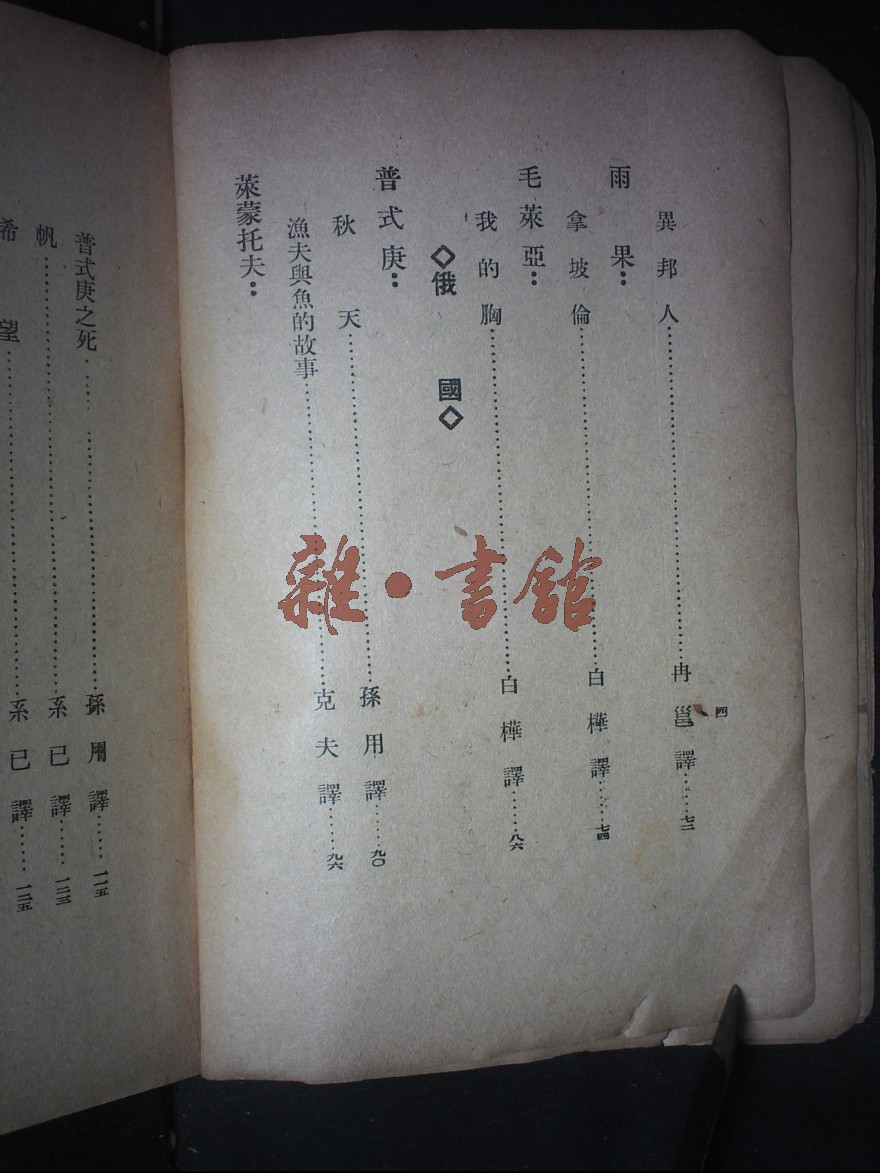 四
異邦人……冉邕譯……七二
雨果：
拿坡倫……白樺譯……七四
毛萊亞：
我的胸……白樺譯……八六
◇俄國◇
普式庚：
秋天……孫用譯……九〇
漁夫與魚的故事……克夫譯……九六
萊蒙托夫：
普式庚之死……孫用譯……一一五
帆……系已譯……一二三
希望……系已譯……一二五
雜·書館